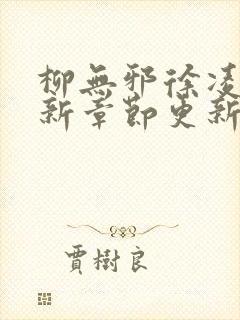 柳無邪徐凌
新章節更新
賈樹良